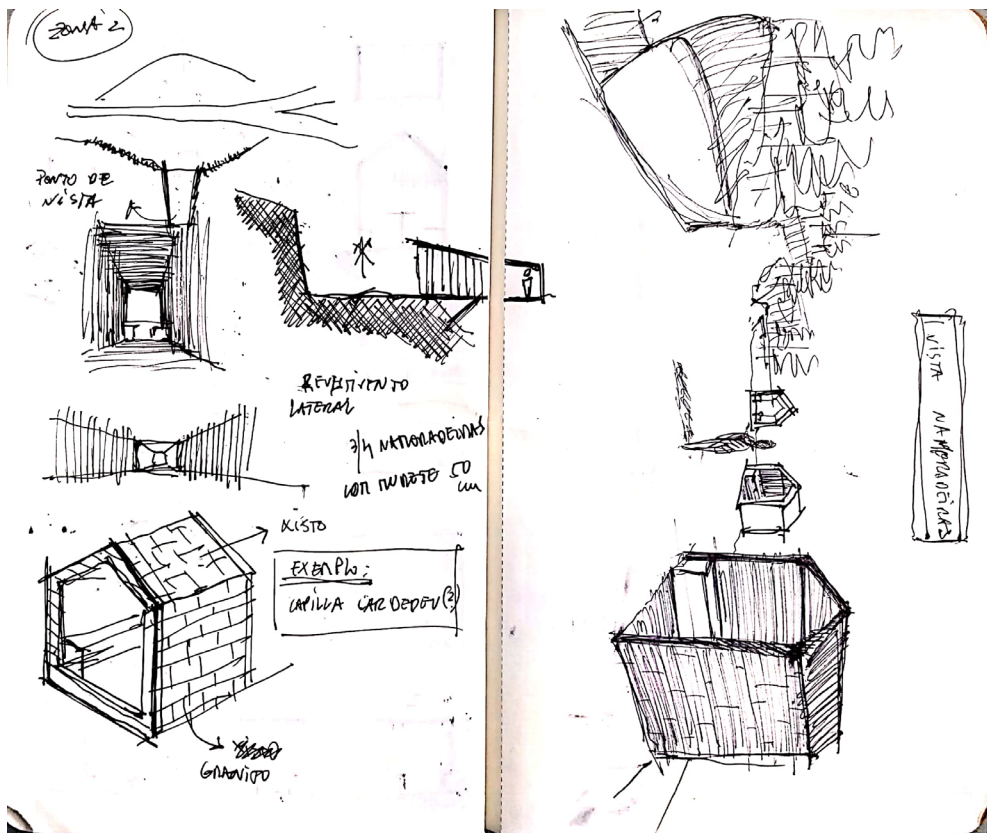 ZONA 2
PONTO DE
VISTA
REVESTIMENTO
LATERAL
3/4 NAMORADEIRAS
COM MURETE 50
cm
XISTO
EXEMPLO:
CAPILLA CARDEDEU (?)
GRANITO
VISTA NAMORADEIRAS